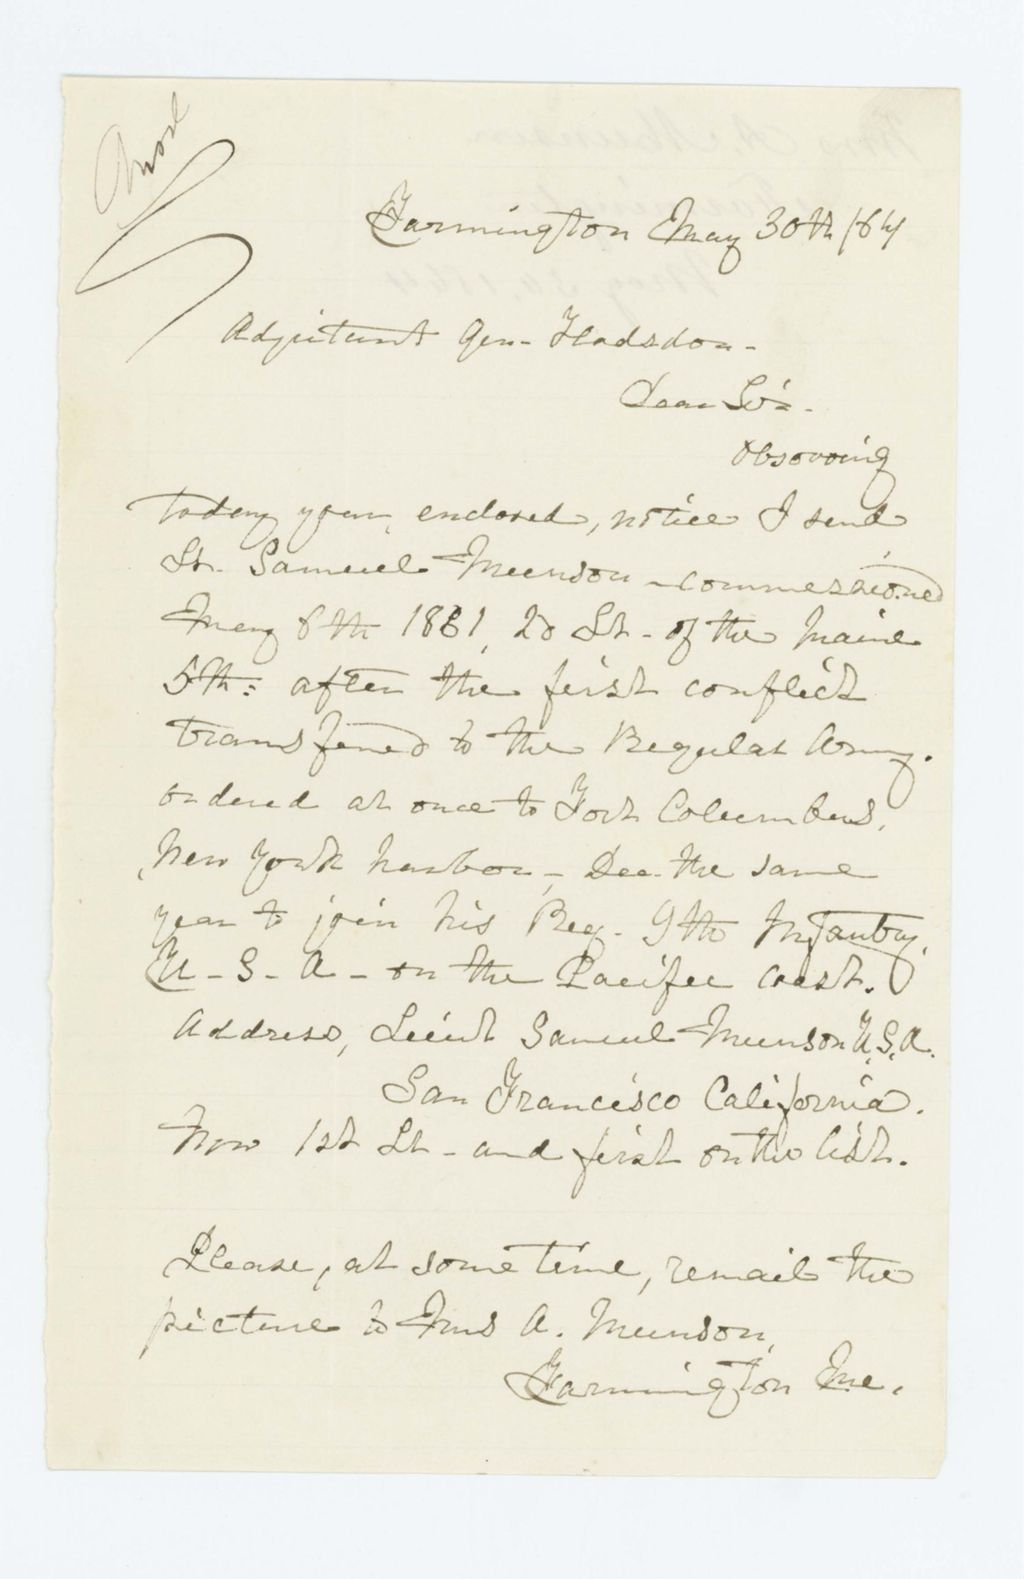 Farmington May 30th /64
Adjutant Gen- Hodsdon-
Dear Sir-
Observing
today your enclosed, notice I send
Lt. Samuel Munson - commissioned
May 6th 1861, 2d Lt- of the Maine
5th: after the first conflict
transfered to the Regular Army.
ordered at once to Fort Columbus,
New York harbor-, Dec. the same
year to join his Reg- 9th Infantry,
U-S-A- on the Pacific coast.
Address, Lieut Samuel Munson U.S.A.
San Francisco California.
Now 1st Lt- and first on the list.
Please, at some time, remail the
picture to Mrs A. Munson,
Farmington Me.